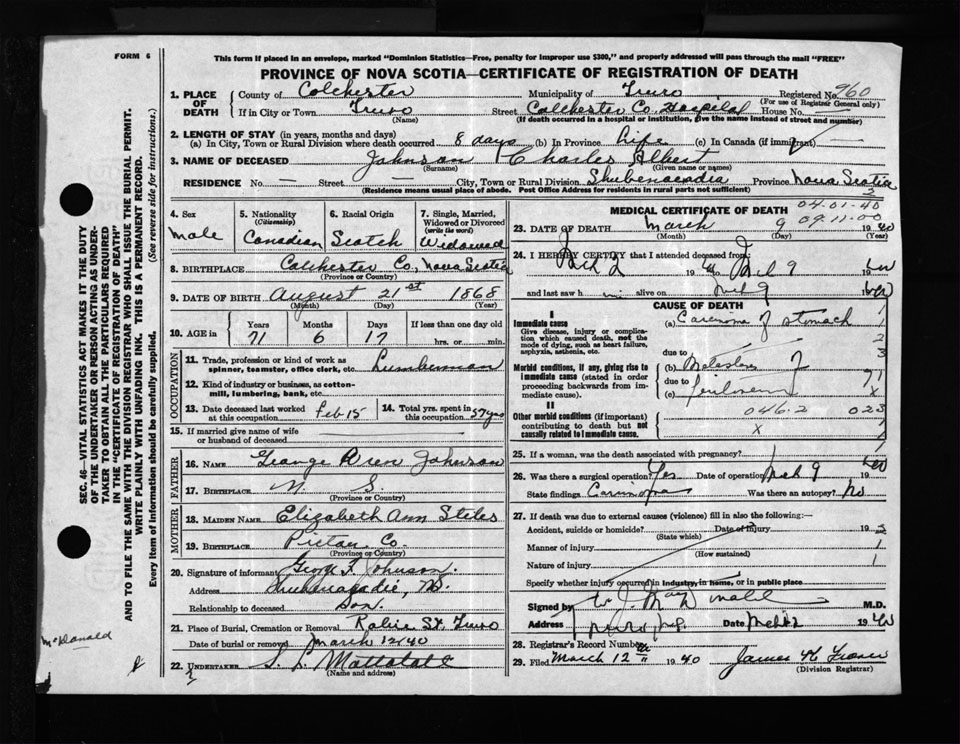 FORM 6
This form if placed in an envelope, marked "Dominion Statistics—Free, penalty for improper use $300," and properly addressed will pass through the mail "FREE"
PROVINCE OF NOVA SCOTIA—CERTIFICATE OF REGISTRATION OF DEATH
1. PLACE OF DEATH
County of Colchester Municipality of Truro Registered No. 960
(For use of Registrar General only)
If in City or Town Truro Street Colchester Co. Hospital House No.
(Name) (If death occurred in a hospital or institution, give the name instead of street and number)
2. LENGTH OF STAY (in years, months and days)
(a) In City, Town or Rural Division where death occurred 8 days (b) In Province Life (c) In Canada (if immigrant)
3. NAME OF DECEASED Johnson Charles Albert
(Surname) (Given name or names)
RESIDENCE No. — Street — City, Town or Rural Division Shubenacadia Province Nova Scotia
(Residence means usual place of abode. Post Office Address for residents in rural parts not sufficient)
4. Sex
Male
5. Nationality
(Citizenship)
Canadian
6. Racial Origin
Scotch
7. Single, Married, Widowed or Divorced
(write the word)
Widowed
8. BIRTHPLACE Colchester Co, Nova Scotia
(Province or Country)
9. DATE OF BIRTH August 21st 1868
(Month) (Day) (Year)
10. AGE in
Years Months Days If less than one day old
71 6 17 hrs. or min.
OCCUPATION
11. Trade, profession or kind of work as spinner, teamster, office clerk, etc. Lumberman
12. Kind of industry or business, as cotton-mill, lumbering, bank, etc.
13. Date deceased last worked at this occupation Feb 15
14. Total yrs. spent in this occupation 57 yrs
15. If married give name of wife or husband of deceased
FATHER
16. NAME George Johnson
17. BIRTHPLACE N. S.
(Province or Country)
MOTHER
18. MAIDEN NAME Elizabeth Ann Stiles
19. BIRTHPLACE Pictou Co.
(Province or Country)
20. Signature of informant George F. Johnson.
Address
Relationship to deceased Son.
21. Place of Burial, Cremation or Removal Robie St. Truro
Date of burial or removal March 12/40
22. UNDERTAKER
(Name and address)
MEDICAL CERTIFICATE OF DEATH
04-01-40
09-11-00
23. DATE OF DEATH March 9 1940
(Month) (Day) (Year)
24. I HEREBY CERTIFY that I attended deceased from:
Mch 2 1940 to Mch 9 1940
and last saw h im alive on Mch 9 1940
CAUSE OF DEATH
I
Immediate cause
Give disease, injury or complication which caused death, not the mode of dying, such as heart failure, asphyxia, asthenia, etc.
(a) Carcinoma of stomach
due to
Morbid conditions, if any, giving rise to immediate cause (stated in order proceeding backwards from immediate cause).
(b) Metastases of
due to
(c)
II
Other morbid conditions (if important) contributing to death but not causally related to immediate cause.
046.2 023
X
25. If a woman, was the death associated with pregnancy?
26. Was there a surgical operation? Yes Date of operation Mch 9 1940
State findings Carcinoma Was there an autopsy? No
27. If death was due to external causes (violence) fill in also the following:—
Accident, suicide or homicide? Date of injury 19
(State which)
Manner of injury
(How sustained)
Nature of injury
Specify whether injury occurred in industry, in home, or in public place
Signed by M.D.
Address Date Mch 12 1940
28. Registrar's Record Number
29. Filed March 12th 1940 James
(Division Registrar)
SEC. 46—VITAL STATISTICS ACT MAKES IT THE DUTY
OF THE UNDERTAKER OR PERSON ACTING AS UNDERTAKER
TO OBTAIN ALL THE PARTICULARS REQUIRED
IN THE "CERTIFICATE OF REGISTRATION OF DEATH"
AND TO FILE THE SAME WITH THE DIVISION REGISTRAR WHO SHALL ISSUE THE BURIAL PERMIT.
WRITE PLAINLY WITH UNFADING INK. THIS IS A PERMANENT RECORD.
Every item of information should be carefully supplied. (See reverse side for instructions.)
McDonald